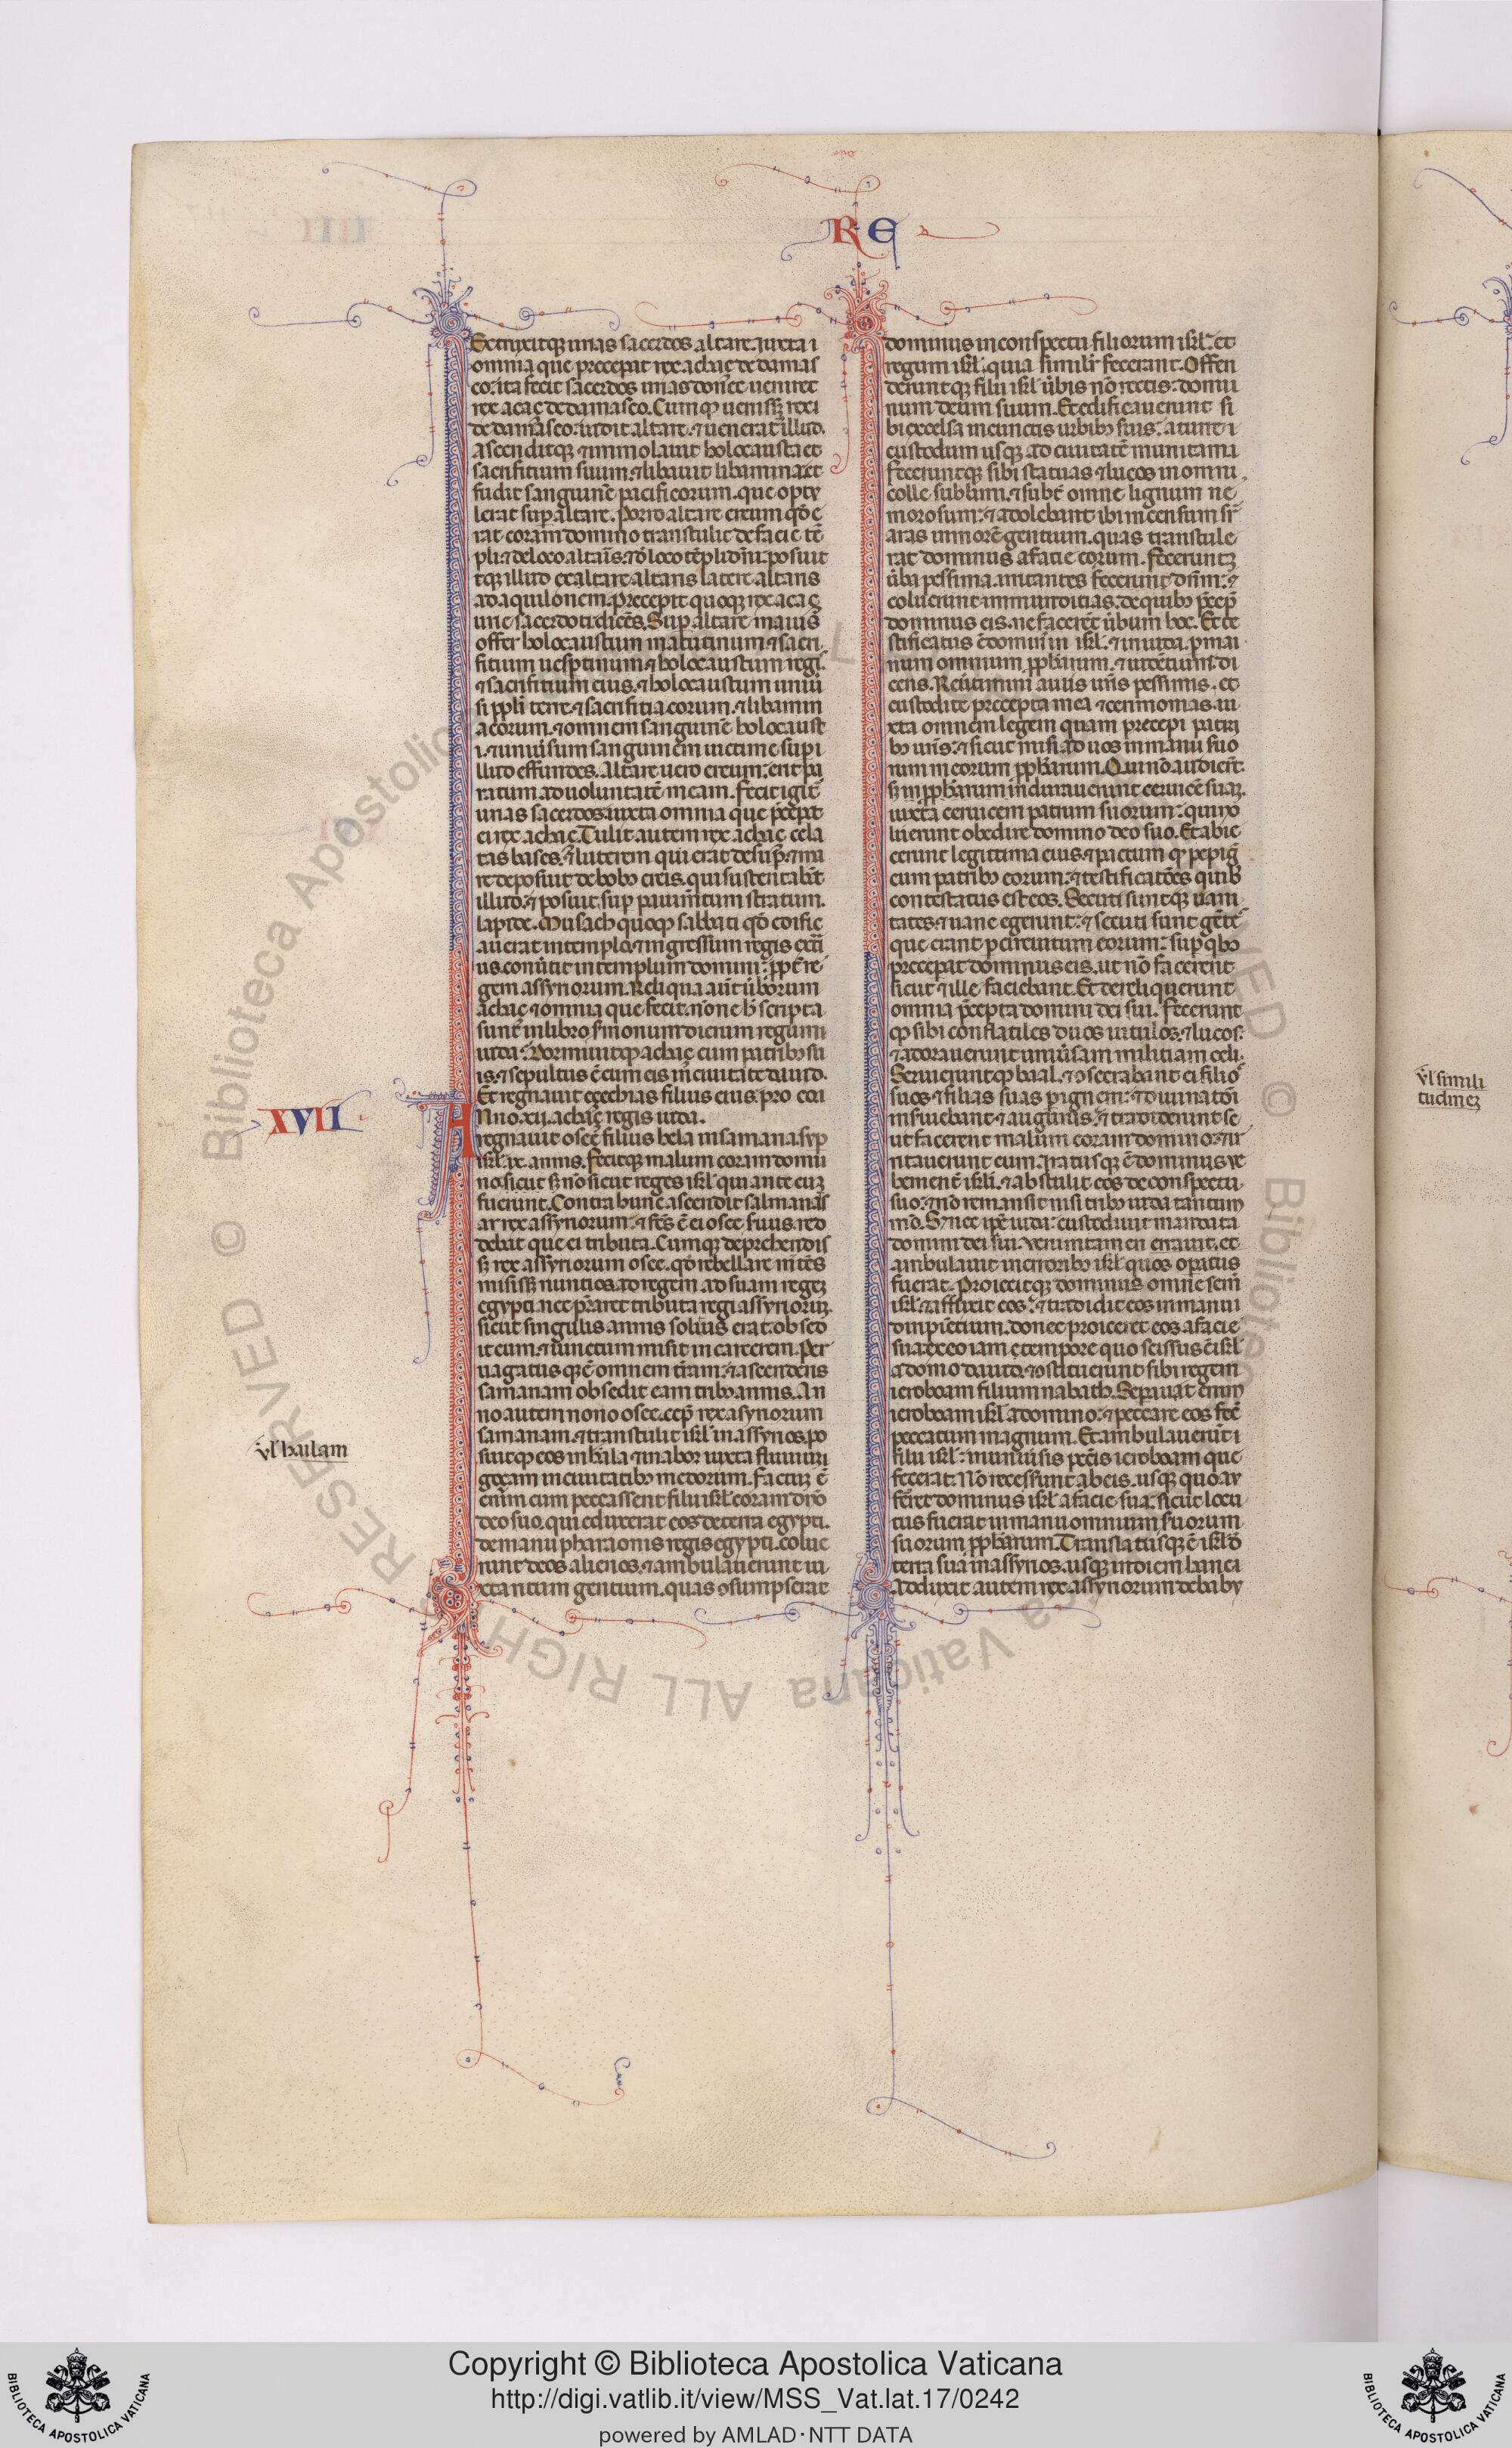 RE
Extruxitqꝫ urias sacerdos altare iuxta i
omnia que preceperat rex achaç de damas
co. ita fecit sacerdos urias donec ueniret
rex acaç de damasco. Cumqꝫ uenissꝫ rex
de damasco. uidit altare. ⁊ ueneratᵉ illud.
Ascenditqꝫ ⁊ immolauit holocausta et
sacrifitium suum. ⁊ libauit libamina. et
fudit sanguinē pacificorum. que optu
lerat sup̄ altare. Porro altare ereum qd̄ e
rat coram domino transtulit de facie tē
pli. ⁊ de loco altaris. ⁊ d̄ loco tēpli dn̄i. posuit
tqꝫ illud ex altare altaris latere altaris
ad aquilonem. Precepit quoqꝫ rex acaç
urie sacerdoti dicēs. Sup̄ altare maius
offer holocaustum matutinum ⁊ sacri
fitium uesp̄tinum ⁊ holocaustum regis.
⁊ sacrifitium eius. ⁊ holocaustum uniuer
si pp̄li terre ⁊ sacrifitia eorum. ⁊ libamin
a eorum. ⁊ omnem sanguinē holocaust
i. ⁊ uniusum sanguinem uictime sup̄ i
llud effundes. Altare uero ereum: erit pa
ratum ad uoluntatē meam. Fecit igit̄
urias sacerdos iuxta omnia que p̄cep̄at
ei rex achaç. Tulit autem rex achaç cela
tas bases. ⁊ luterem qui erat desup̄. ⁊ ma
re deposuit de bobꝰ ereis. qui sustentabāt
illud. ⁊ posuit sup̄ pauim̄tum stratum.
lapide. Musach quoqꝫ sabbati qd̄ edific
auerat in templo. ⁊ ingressum regis ext̄i
us. conūtit in templum domini: pp̄t̄ re
gem assyriorum. Reliqua aūt ūborum
achaç ⁊ omnia que fecit. nōne h̄ scripta
sunt in libro s̄monum dierum regum
iuda: Dormiuitqꝫ achaç cum patribꝰ su
is. ⁊ sepultus ē cum eis in ciuitate dauid.
Et regnauit eçechias filius eius. pro eo.
XVII
Anno. xii. achaç regis iuda.
regnauit osee filius hela in samaria sup̄
isrl̄. ix. annis. Fecitqꝫ malum coram domi
no. sicut sꝫ nō sicut reges isrl̄ qui ante eum
fuerunt. Contra hunc ascendit salmanas
ar rex assyriorum. ⁊ fcs̄ ē ei osee suus. red
debat que ei tributa. Cumqꝫ deprehendis
sꝫ rex assyriorum osee. qd̄ rebellare nitēs
misissꝫ nuntios. ad regem ad suam regeꝫ
egypti. nec p̄staret tributa regi assyrioruꝫ.
sicut singulis annis solitus erat. obsed
it eum. ⁊ uinctum misit in carcerem. Per
uagatus qꝫ ē omnem tr̄am. ⁊ ascendens
samariam obsedit eam tribꝰ annis. An
no autem nono osee. cep̄ rex asyriorum
samariam. ⁊ transtulit isrl̄ in assyrios. po
suitqꝫ eos in hala ⁊ in abor iuxta fluuium
goçam in ciuitatibꝰ medorum. Factuꝫ ē
enim cum peccassent filii isrl̄ coram dn̄o
deo suo. qui eduxerat eos de terra egypti.
de manu pharaonis regis egypti. colue
runt deos alienos. ⁊ ambulauerunt iu
xta ritum gentium. quas ꝯsumpserat
ul̄ hailam
dominus in conspectu filiorum isrl̄. et
regum isrl̄. quia similit̄ fecerant. Offen
deruntqꝫ filii isrl̄ ūbis nō rectis: domi
num deum suum. Et edificauerunt si
bi excelsa in cunctis urbibꝰ suis: a turre
custodum usqꝫ ad ciuitatē munitam.
Feceruntqꝫ sibi statuas ⁊ lucos in omni
colle sublimi. ⁊ subt̄ omne lignum ne
morosum: ⁊ adolebant ibi incensum sr̄
aras in morē gentium. quas transtule
rat dominus a facie eorum. Feceruntꝫ
ūba pessima. irritantes fecerunt dn̄m: ⁊
coluerunt immunditias. de quibꝰ p̄cep̄
dominus eis. ne facerēt ūbum hoc. Et te
stificatus ē domin̄ in isrl̄. ⁊ in iuda. p̄ ma
num omnium pp̄harum. ⁊ uidētium. di
cens. Reūtimini a uiis ur̄is pessimis. et
custodite precepta mea ⁊ cerimonias. iu
xta omnem legem quam precepi patri
bꝰ ur̄is: ⁊ sicut misi ad uos in manu suo
rum meorum pp̄harum. Qui nō audier̄t.
sꝫ in pp̄harum indurauerunt ceruicē suaꝫ.
iuxta ceruicem patrum suorum: qui no
luerunt obedire domino deo suo. Et abie
cerunt legittima eius. ⁊ pactum qd̄ pepigit
cum patribꝰ eorum: ⁊ testificatōes quibꝰ
contestatus est eos. Secuti suntqꝫ uani
tates. ⁊ uane egerunt: ⁊ secuti sunt gēte
que erant p̄ circuitum eorum: sup̄ qbꝰ
preceperat dominus eis. ut nō facerent
sicut ⁊ ille faciebant. Et dereliquerunt
omnia p̄cepta domini dei sui. Fecerunt
qꝫ sibi conflatiles duos uitulos. ⁊ lucos:
⁊ adorauerunt uniūsam militiam celi.
Seruieruntqꝫ baal. ⁊ ꝯsecrabant ei filio
suos ⁊ filias suas p̄ ignem: ⁊ diuinatōi
inseruiebant ⁊ auguriis. ⁊ tradiderunt se
ut facerent malum coram domino: ⁊ ir
ritauerunt eum. Iratusqꝫ ē dominus ue
hement̄ isrli. ⁊ abstulit eos de conspectu
suo: ⁊ nō remansit nisi tribꝰ iuda tantum
mō. Sꝫ nec ip̄e iuda: custodiuit mandata
domini dei sui. Verumtamen errauit. et
ambulauit in erroribꝰ isrl̄ quos operatus
fuerat. Proiecitqꝫ dominus omne semē
isrl̄. ⁊ afflixit eos: ⁊ tradidit eos in manu
diripiētium. donec proiceret eos a facie
sua. ex eo iam tempore quo scissus ē isrl̄
a domo dauid. ⁊ ꝯstituerunt sibi regem
ieroboam filium nabath. Separauit enim
ieroboam isrl̄ a domino: ⁊ peccare eos fec̄
peccatum magnum. Et ambulauerunt
filii isrl̄: in uniūsis pccīs ieroboam que
fecerat. Nō recesserunt ab eis. usqꝫ quo au
ferret dominus isrl̄ a facie sua. sicut locu
tus fuerat in manu omnium suorum
suorum pp̄harum. Translatusqꝫ ē isrl̄ d̄
terra sua in assyrios. usqꝫ in diem hanc.
Adduxit autem rex assyriorum de baby
ul̄ simili
tudineꝫ
Copyright © Biblioteca Apostolica Vaticana
http://digi.vatlib.it/view/MSS_Vat.lat.17/0242
powered by AMLAD·NTT DATA
BIBLIOTECA APOSTOLICA VATICANA
BIBLIOTECA APOSTOLICA VATICANA